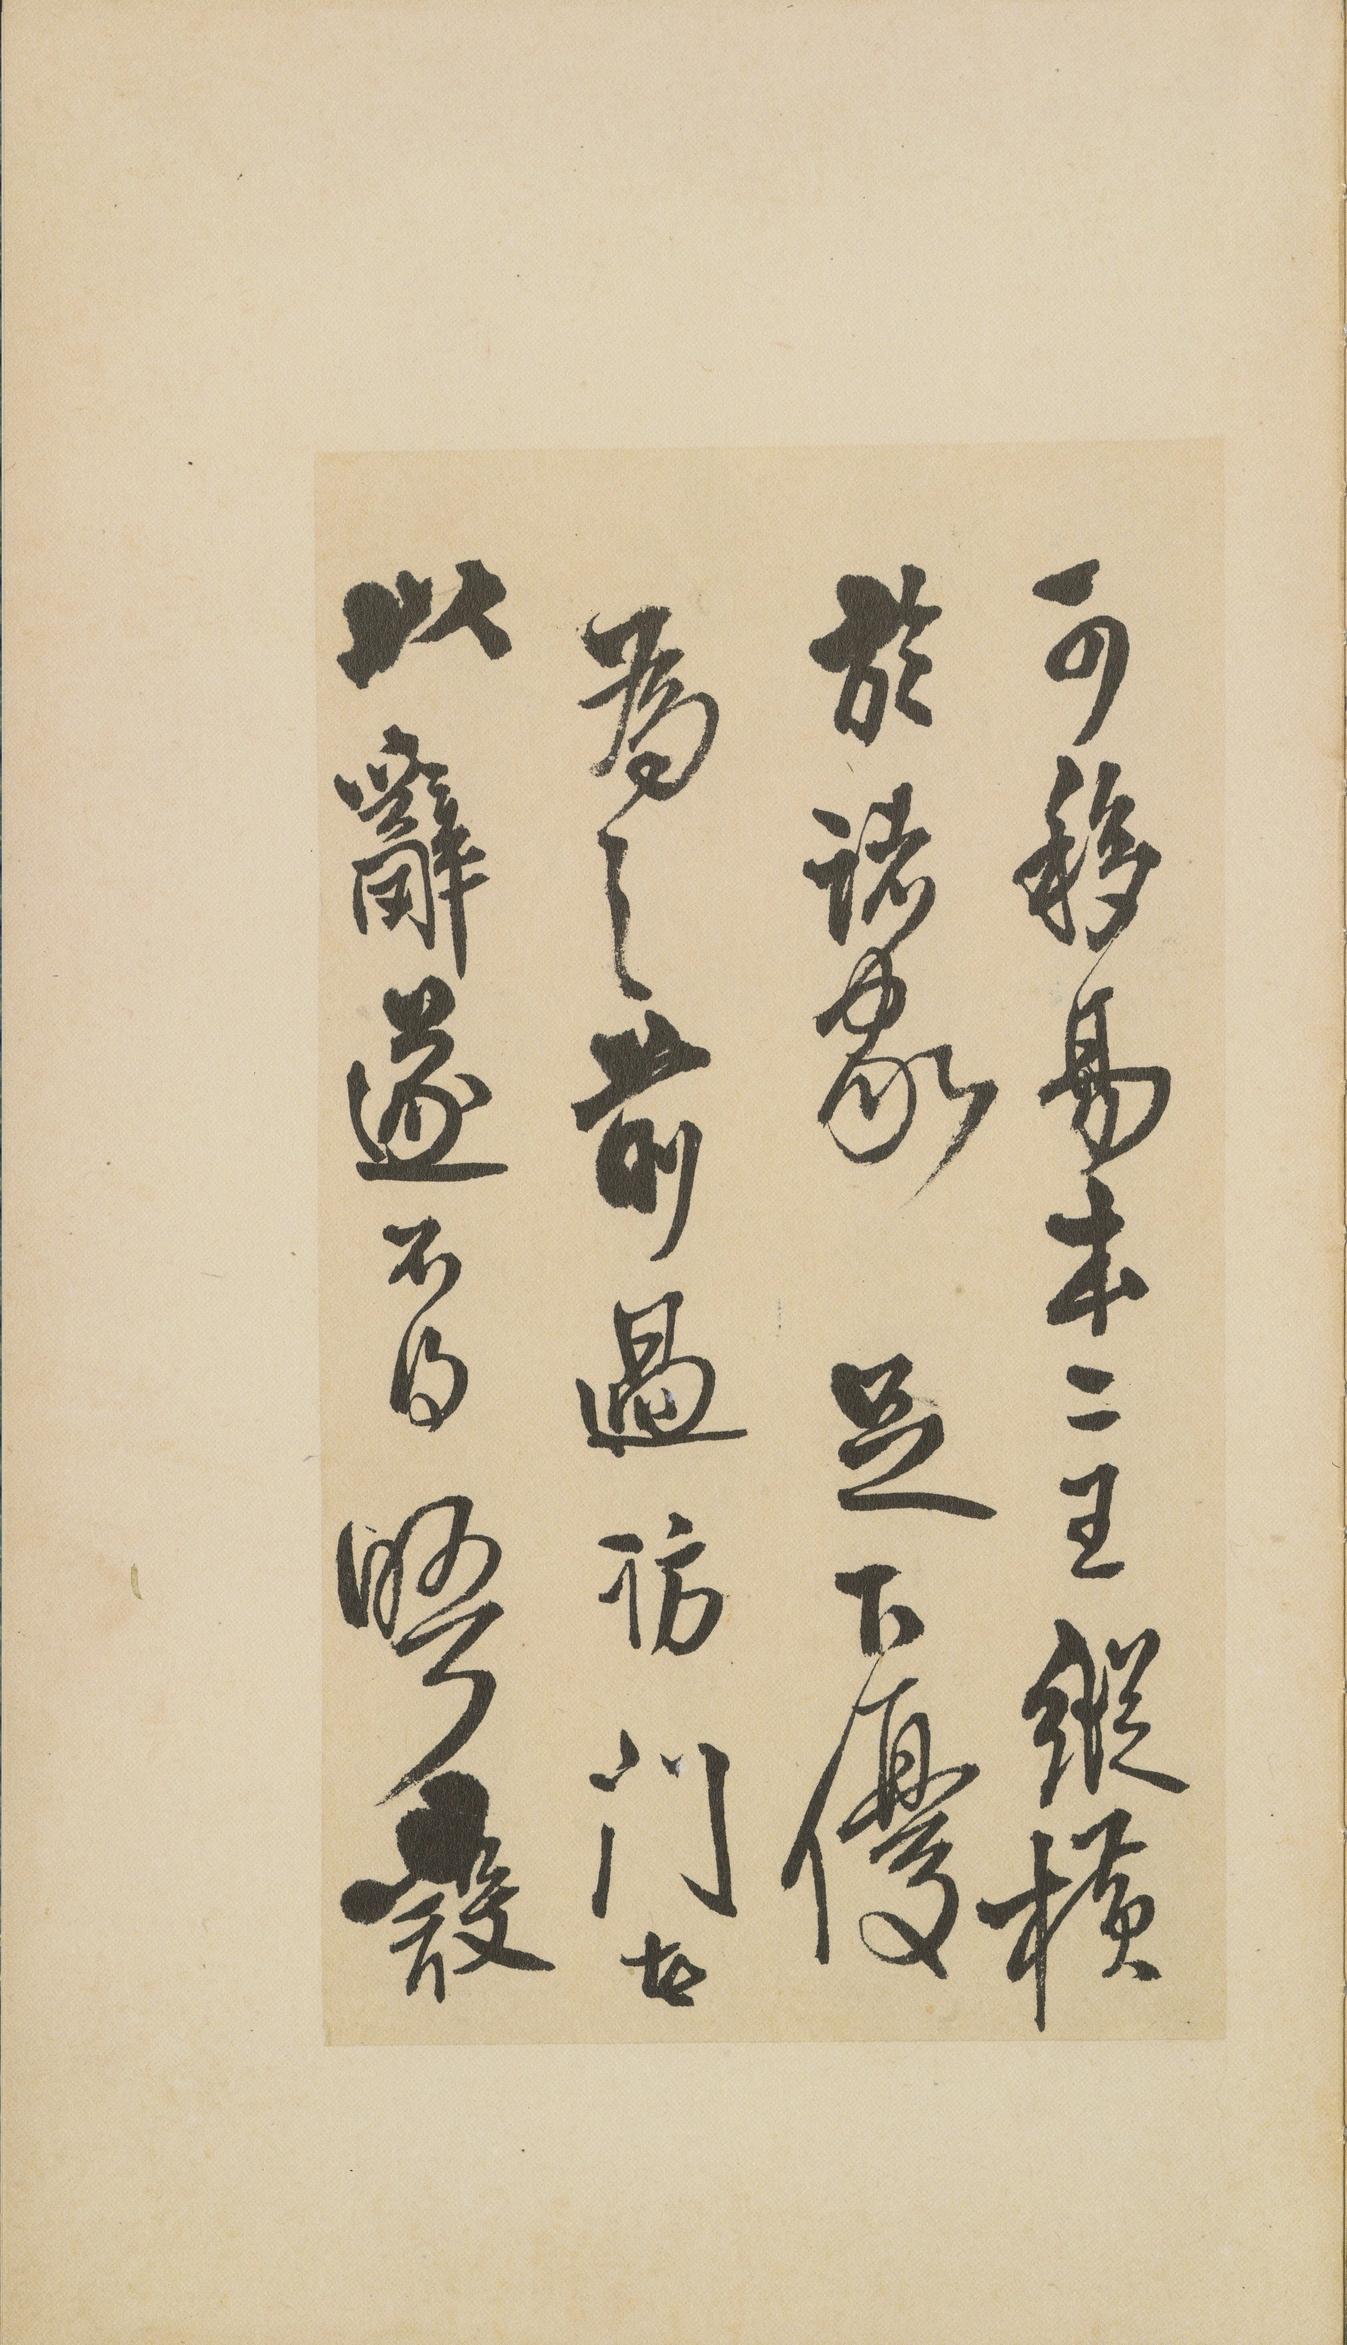 可移易本二王縱橫
於諸家足下優
為之前過訪門者
以辭遂不得晤